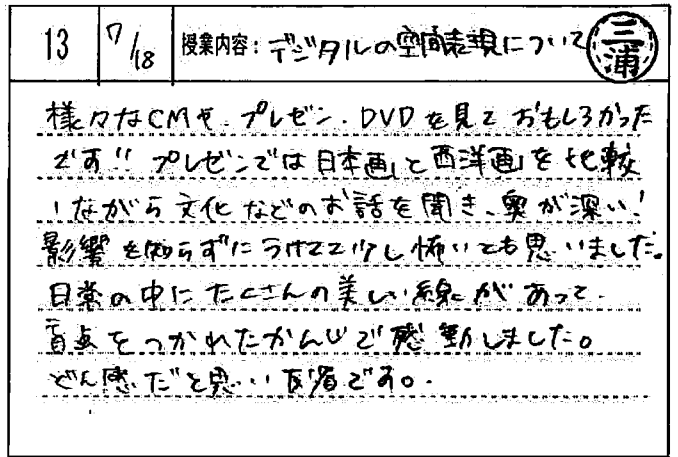 13 7/18 授業内容: デジタルの空間表現について 三浦
様々なCMや、プレゼン、DVDを見ておもしろかった
です!! プレゼンでは日本画と西洋画を比較
しながら文化などのお話を聞き、奥が深い!
影響を知らずにうけてて少し怖いとも思いました。
日常の中にたくさんの美しい線があって、
盲点をつかれたかんじで感動しました。
どん感だと思い反省です。